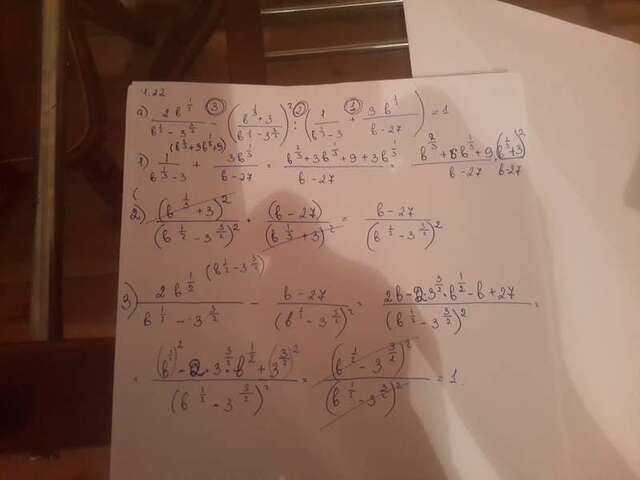 4.22
a) \frac{2b^{\frac{1}{2}}}{b^{\frac{1}{2}}-3^{\frac{3}{2}}} ③ - \left(\frac{b^{\frac{1}{3}}+3}{b^{\frac{1}{2}}-3^{\frac{3}{2}}}\right)^2 ② : \left(\frac{1}{b^{\frac{1}{3}}-3} ① + \frac{3b^{\frac{1}{3}}}{b-27}\right) = 1
1) \frac{1}{b^{\frac{1}{3}}-3} (b^{\frac{2}{3}}+3b^{\frac{1}{3}}+9) + \frac{3b^{\frac{1}{3}}}{b-27} = \frac{b^{\frac{2}{3}}+3b^{\frac{1}{3}}+9+3b^{\frac{1}{3}}}{b-27} = \frac{b^{\frac{2}{3}}+6b^{\frac{1}{3}}+9}{b-27} \frac{(b^{\frac{1}{3}}+3)^2}{b-27}
2) \frac{(b^{\frac{1}{3}}+3)^2}{(b^{\frac{1}{2}}-3^{\frac{3}{2}})^2} · \frac{(b-27)}{(b^{\frac{1}{3}}+3)^2} = \frac{b-27}{(b^{\frac{1}{2}}-3^{\frac{3}{2}})^2}
3) \frac{2b^{\frac{1}{2}}}{b^{\frac{1}{2}}-3^{\frac{3}{2}}} (b^{\frac{1}{2}}-3^{\frac{3}{2}}) - \frac{b-27}{(b^{\frac{1}{2}}-3^{\frac{3}{2}})^2} = \frac{2b-2·3^{\frac{3}{2}}·b^{\frac{1}{2}}-b+27}{(b^{\frac{1}{2}}-3^{\frac{3}{2}})^2} =
= \frac{(b^{\frac{1}{2}})^2-2·3^{\frac{3}{2}}·b^{\frac{1}{2}}+(3^{\frac{3}{2}})^2}{(b^{\frac{1}{2}}-3^{\frac{3}{2}})^2} = \frac{(b^{\frac{1}{2}}-3^{\frac{3}{2}})^2}{(b^{\frac{1}{2}}-3^{\frac{3}{2}})^2} = 1.